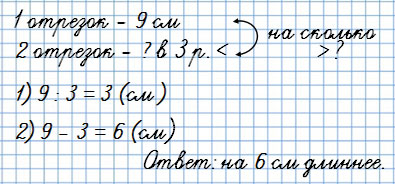 1 отрезок – 9 см
2 отрезок – ? в 3 р. <
на сколько
> ?
1) 9 : 3 = 3 (см)
2) 9 – 3 = 6 (см)
Ответ: на 6 см длиннее.